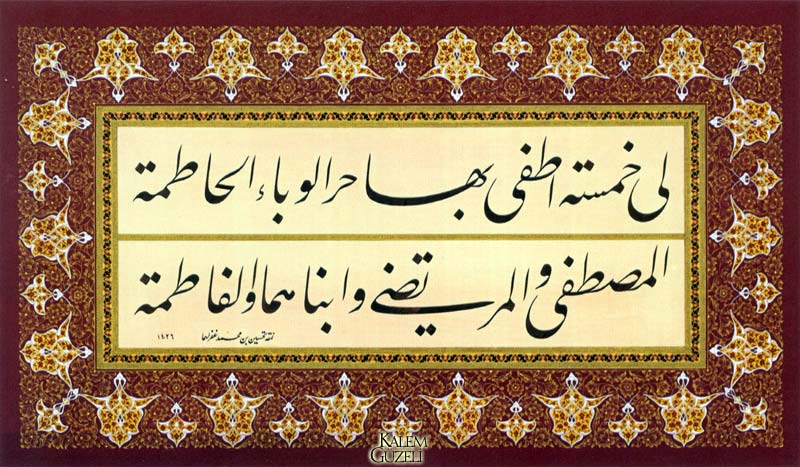 لی خمسته اطفی بها حر الوباء الحاطمة
المصطفی والمرتضی وابناهما والفاطمة
بن محمد غفر لهما
KALEM
GUZELI